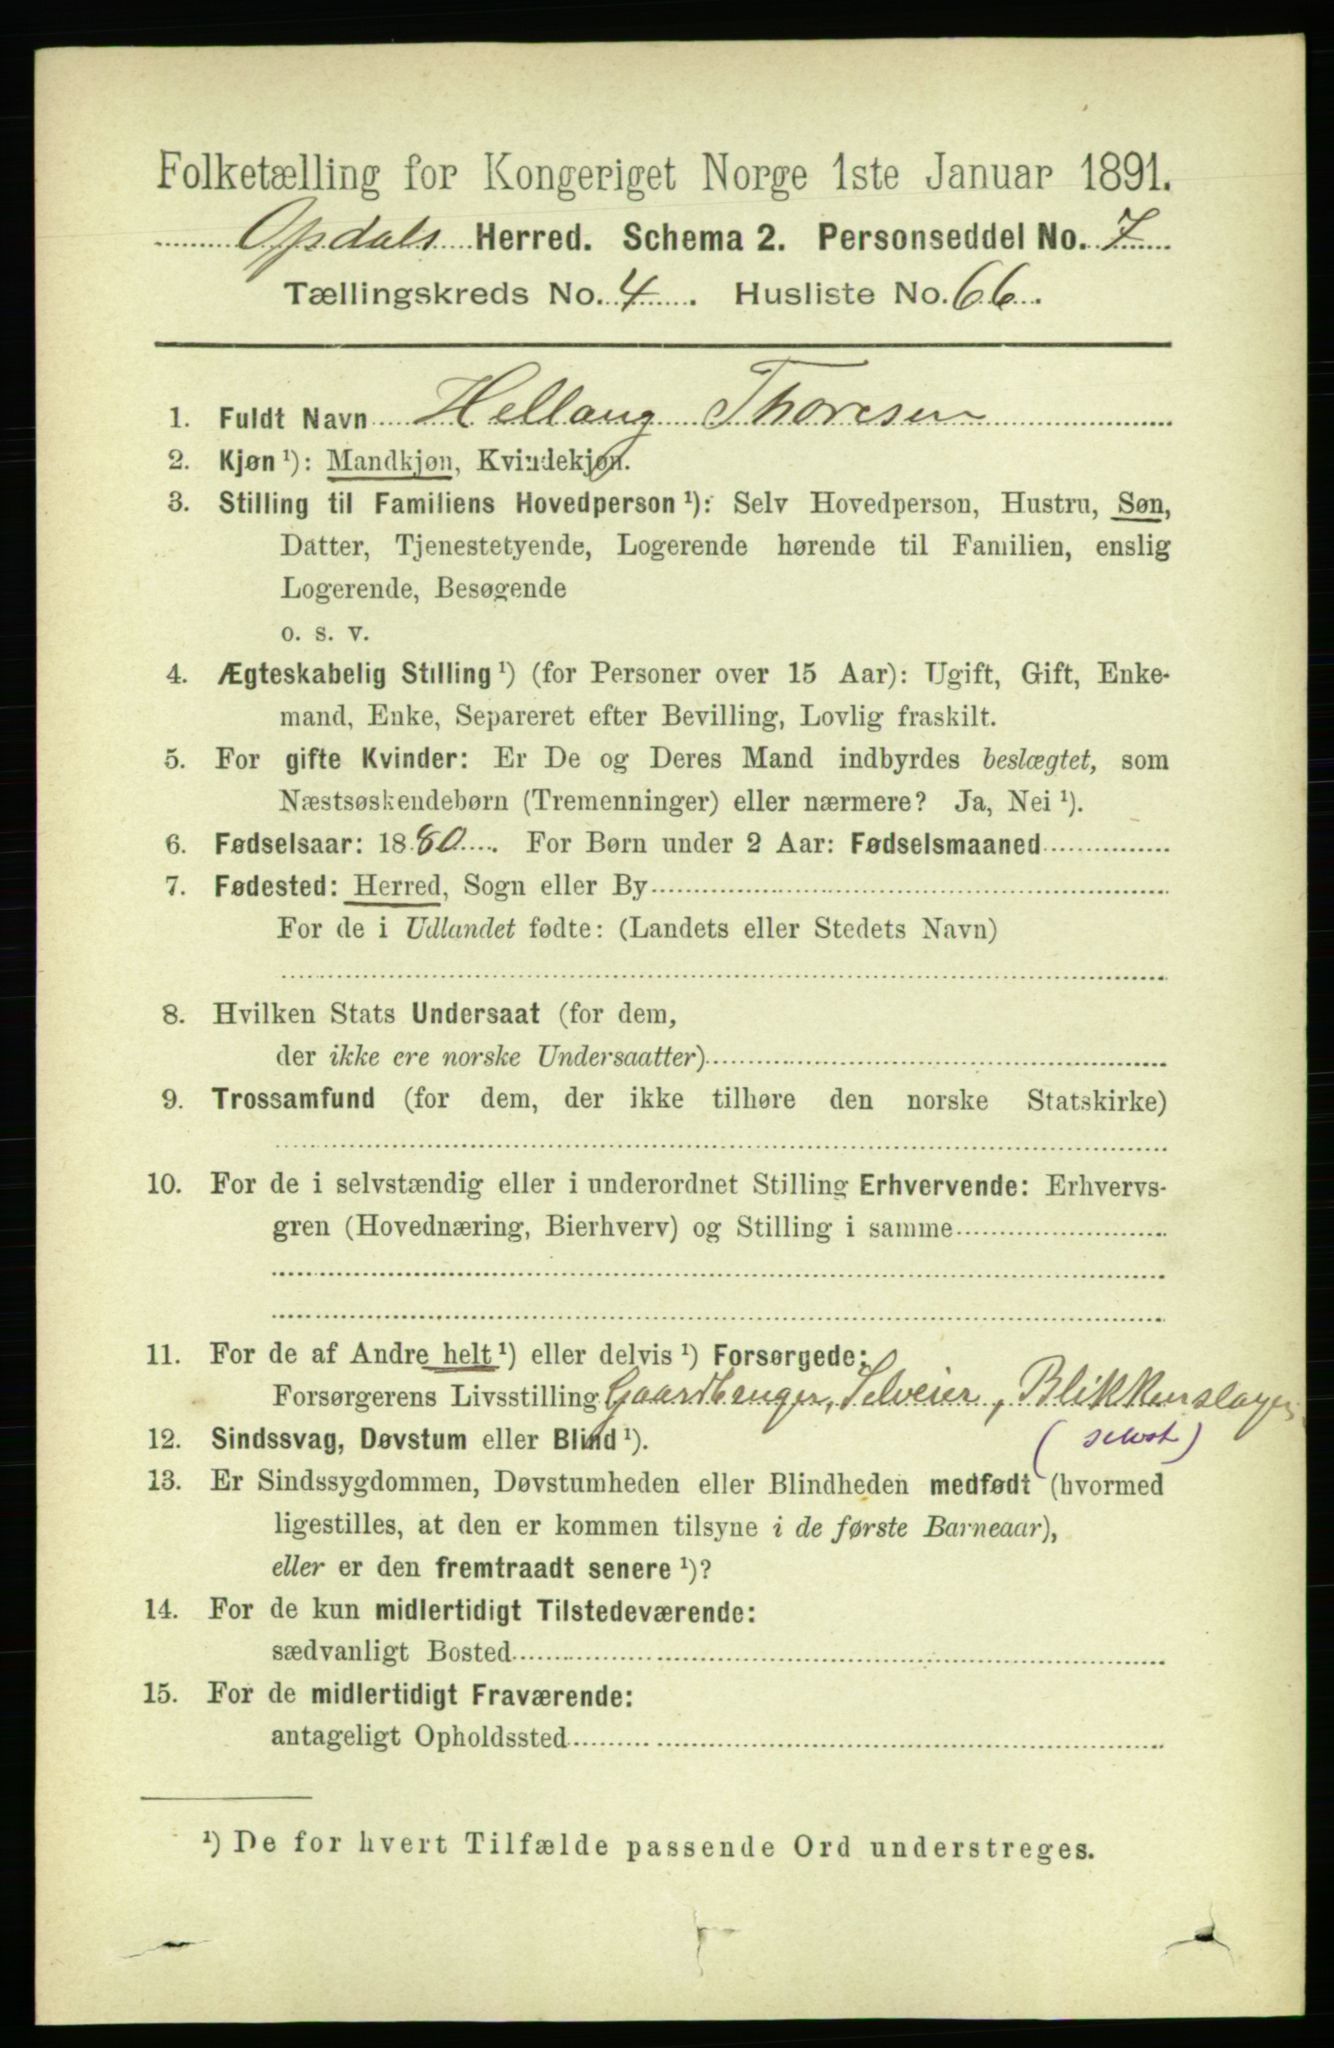 Folketælling for Kongeriget Norge 1ste Januar 1891.
Opdals Herred. Schema 2. Personseddel No. 7
Tællingskreds No. 4. Husliste No. 66.
1. Fuldt Navn Hellaug Thoresen
2. Kjøn ¹): Mandkjøn, Kvindekjøn.
3. Stilling til Familiens Hovedperson ¹): Selv Hovedperson, Hustru, Søn,
Datter, Tjenestetyende, Logerende hørende til Familien, enslig
Logerende, Besøgende
o. s. v.
4. Ægteskabelig Stilling ¹) (for Personer over 15 Aar): Ugift, Gift, Enke-
mand, Enke, Separeret efter Bevilling, Lovlig fraskilt.
5. For gifte Kvinder: Er De og Deres Mand indbyrdes beslægtet, som
Næstsøskendebørn (Tremenninger) eller nærmere? Ja, Nei ¹).
6. Fødselsaar: 1880. For Børn under 2 Aar: Fødselsmaaned
7. Fødested: Herred, Sogn eller By
For de i Udlandet fødte: (Landets eller Stedets Navn)
8. Hvilken Stats Undersaat (for dem,
der ikke ere norske Undersaatter)
9. Trossamfund (for dem, der ikke tilhøre den norske Statskirke)
10. For de i selvstændig eller i underordnet Stilling Erhvervende: Erhvervs-
gren (Hovednæring, Bierhverv) og Stilling i samme
11. For de af Andre helt ¹) eller delvis ¹) Forsørgede:
Forsørgerens Livsstilling Gaardbruger, Selveier, Blikkenslager
(selvst)
12. Sindssvag, Døvstum eller Blind ¹).
13. Er Sindssygdommen, Døvstumheden eller Blindheden medfødt (hvormed
ligestilles, at den er kommen tilsyne i de første Barneaar),
eller er den fremtraadt senere ¹)?
14. For de kun midlertidigt Tilstedeværende:
sædvanligt Bosted
15. For de midlertidigt Fraværende:
antageligt Opholdssted
¹) De for hvert Tilfælde passende Ord understreges.